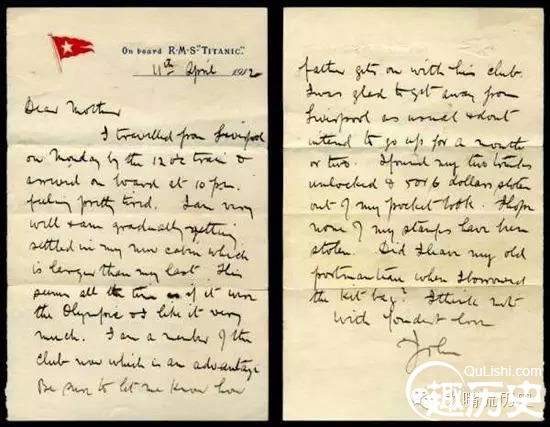 On board R·M·S·"TITANIC".
11th April 1912
Dear Mother
I travelled from Liverpool
on Monday by the 12 o'c train &
arrived on board at 10 pm.
feeling pretty tired. I am very
well & am gradually getting
settled in my new cabin which
is larger than my last. This
seems all the time as if it were
the Olympic & I like it very
much. I am a member of the
club now which is an advantage
Be sure to let me know how
father gets on with his club.
I was glad to get away from
Liverpool as usual & don't
intend to go up for a month
or two. I found my two trunks
unlocked & 5 or 6 dollars stolen
out of my pocket book. I hope
none of my stamps have been
stolen. Did I leave my old
portmanteau when I borrowed
the kit bag? I think not
With fondest love
John
QuLishi.com
趣历史